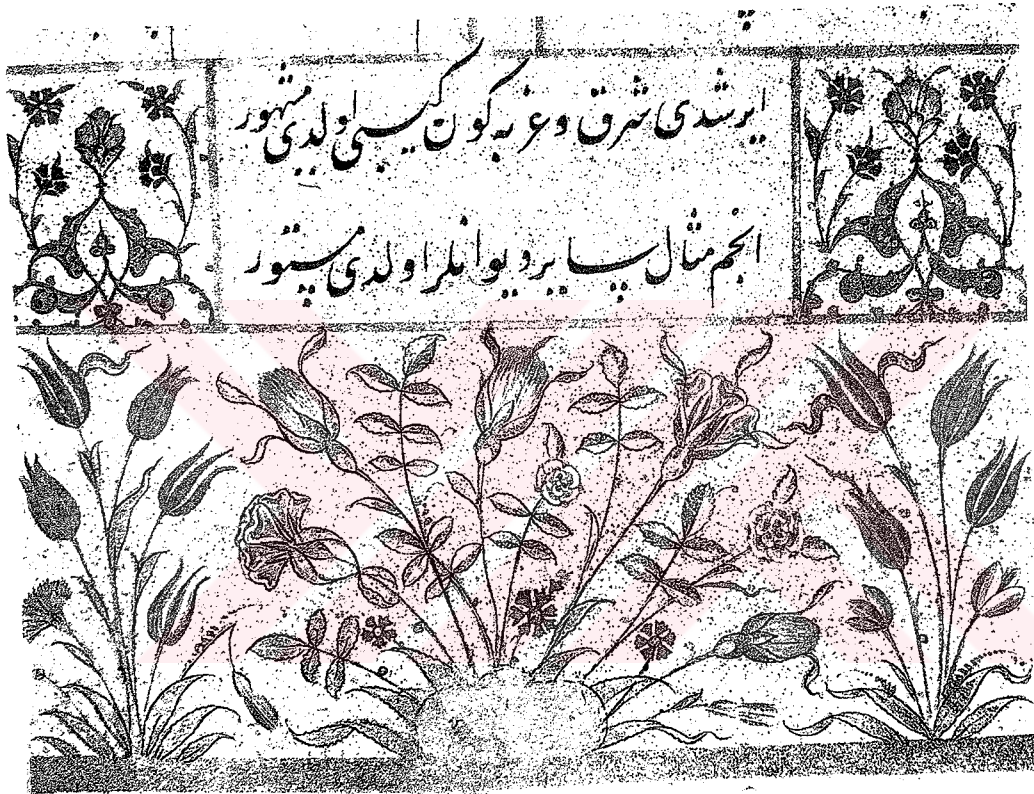 ایرشدی شرق و غربه کون کیبی اولدی مشهور
انجم مثال سایر دیوانلر اولدی مستور